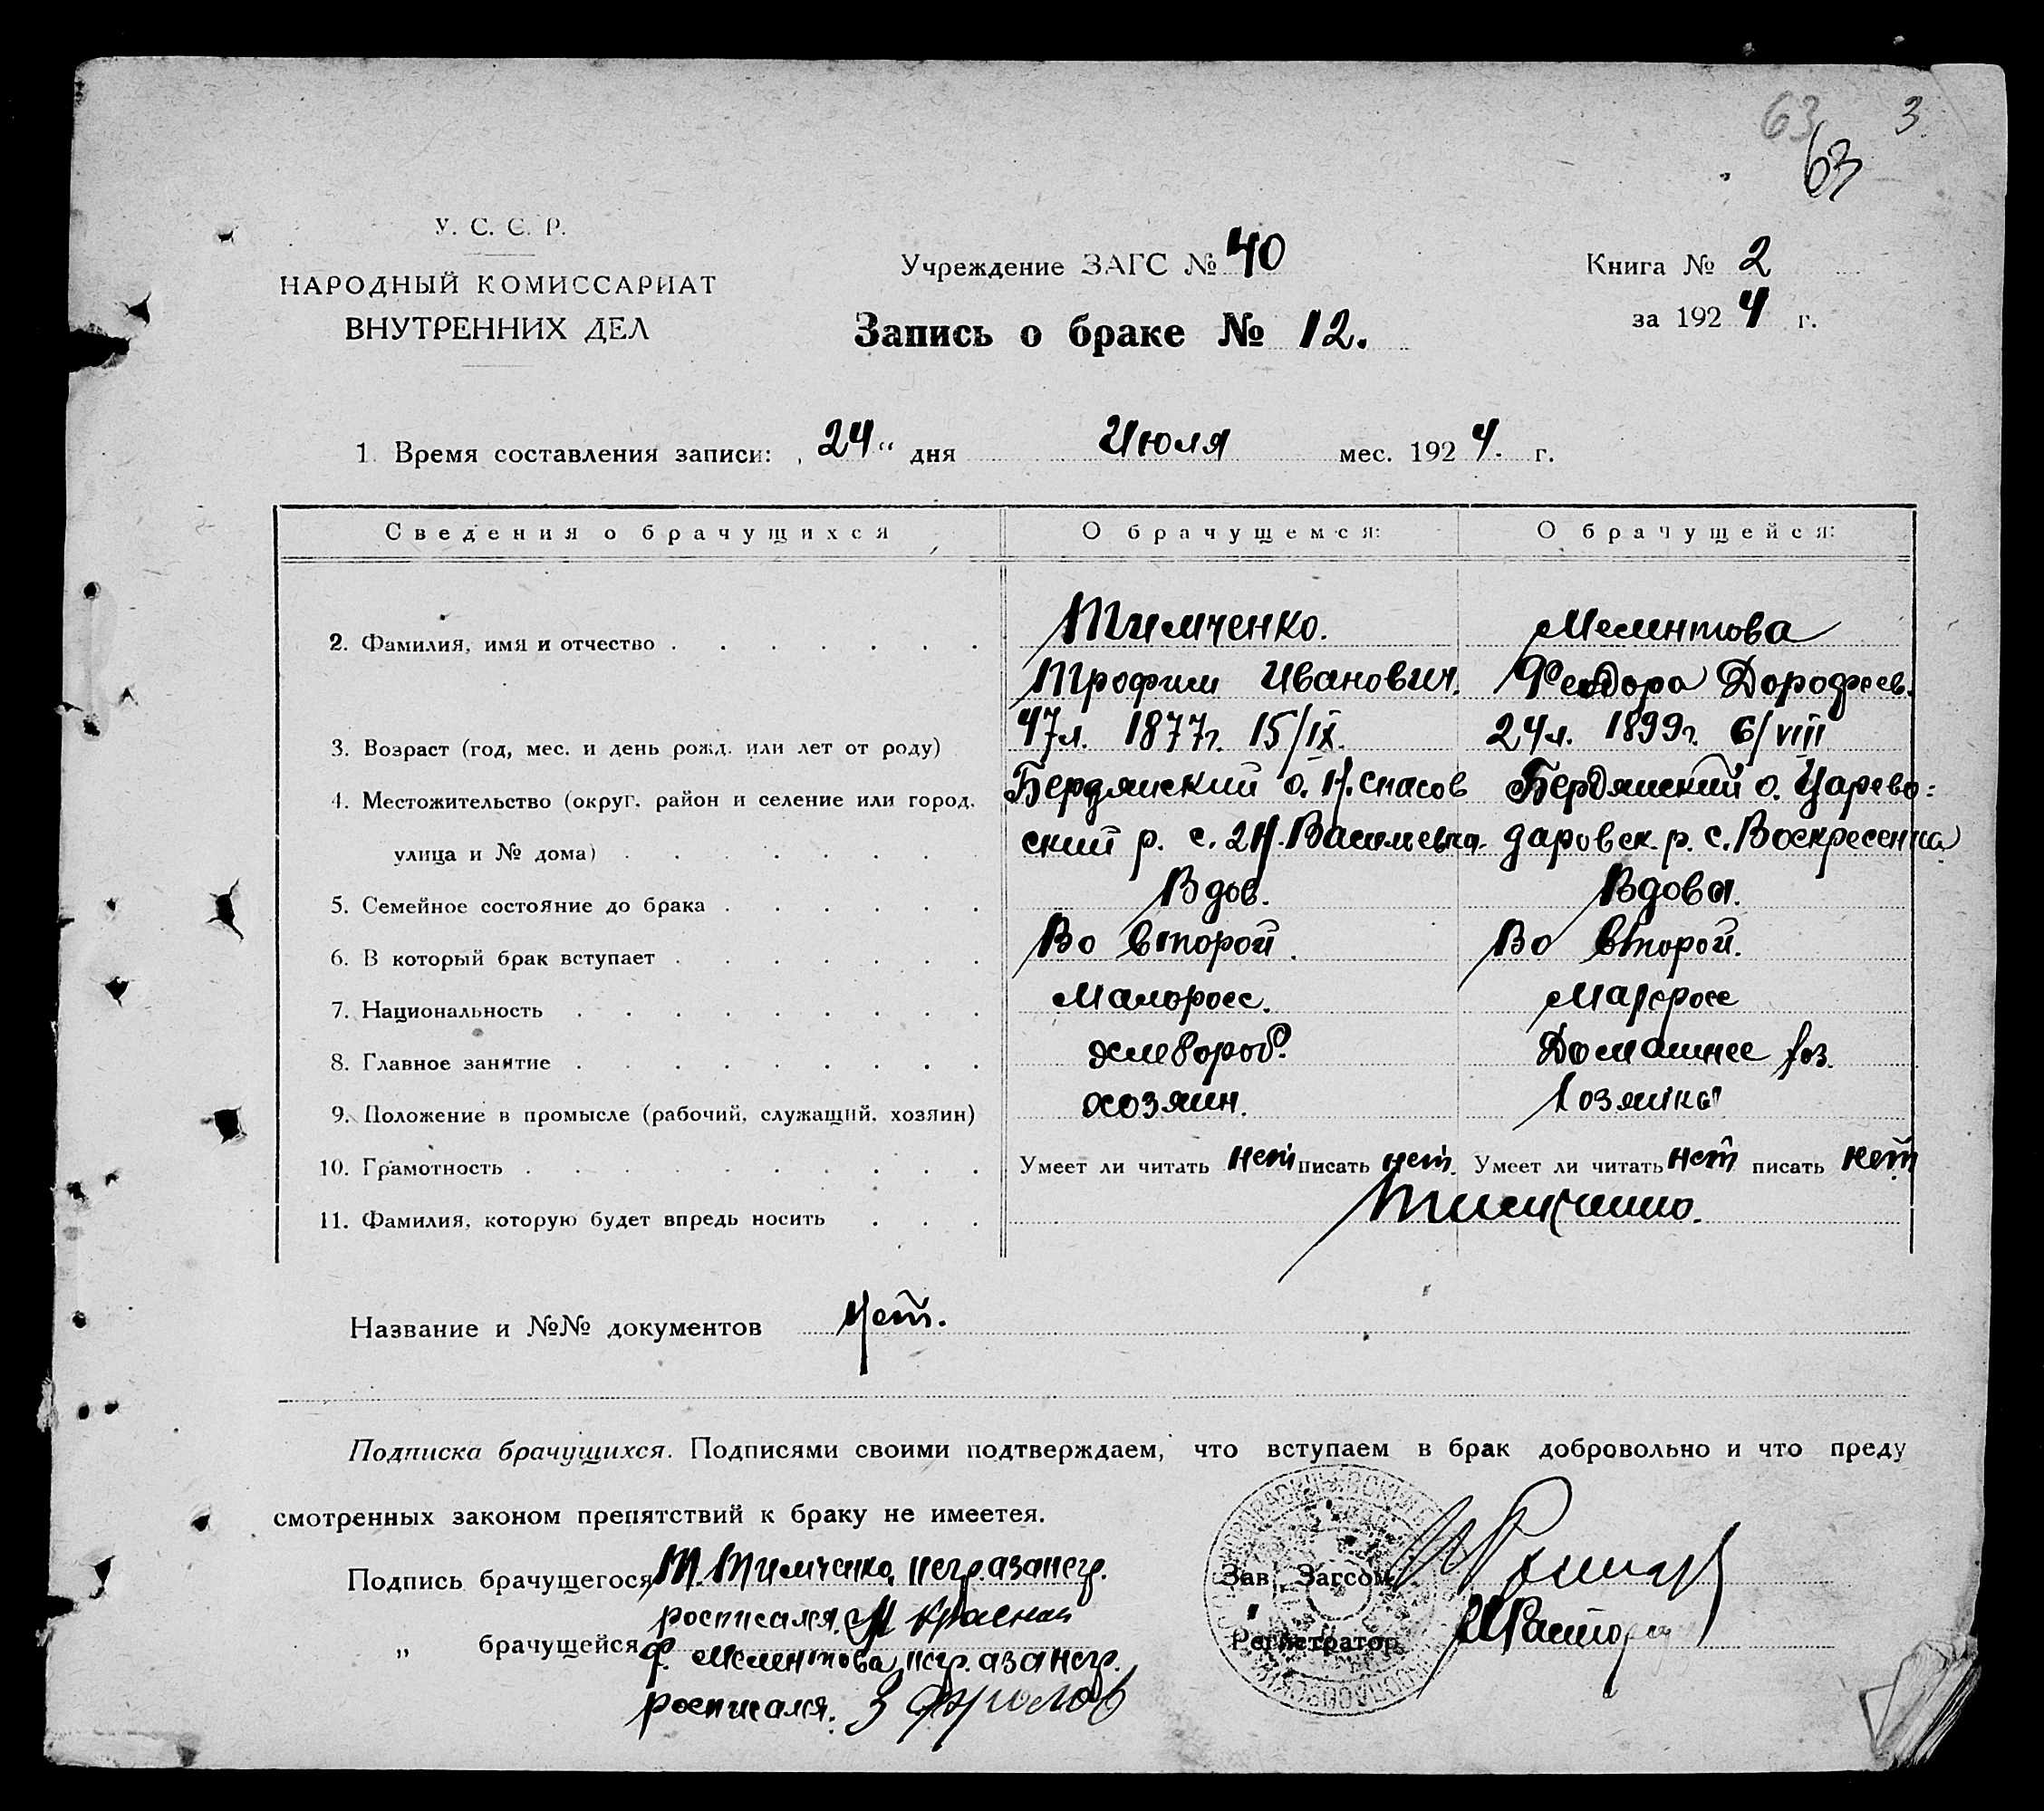 63 3
63
У. С. С. Р.
НАРОДНЫЙ КОМИССАРИАТ
ВНУТРЕННИХ ДЕЛ
Учреждение ЗАГС № 40
Запись о браке № 12.
Книга № 2
за 1924 г.
1. Время составления записи: „24“ дня Июля мес. 1924. г.
Сведения о брачущихся О брачущемся: О брачущейся:
2. Фамилия, имя и отчество Тимченко. Мелентова
Трофим Иванович. Феодора Дорофеев.
3. Возраст (год, мес. и день рожд. или лет от роду) 47л. 1877г. 15/IX. 24л. 1899г. 6/VIII
4. Местожительство (округ, район и селение или город, Бердянский о. Н.спасов Бердянский о. Царево-
улица и № дома) ский р. с. 2 Н.Васильевка. даровск. р. с. Воскресенка
5. Семейное состояние до брака Вдов. Вдова.
6. В который брак вступает Во второй. Во второй.
7. Национальность Малоросс. Малоросс
8. Главное занятие хлебороб. Домашнее хоз.
9. Положение в промысле (рабочий, служащий, хозяин) хозяин. Хозяйка
10. Грамотность Умеет ли читать нет писать нет. Умеет ли читать нет писать нет
11. Фамилия, которую будет впредь носить Тимченко.
Название и №№ документов Нет.
Подписка брачущихся. Подписями своими подтверждаем, что вступаем в брак добровольно и что преду
смотренных законом препятствий к браку не имеетея.
Подпись брачущегося Т. Тимченко, негр. а за негр.
росписался
„ брачущейся Ф. Мелентова, негр. а за негр.
росписался. З Фролов
Зав. Загсом
Регистратор